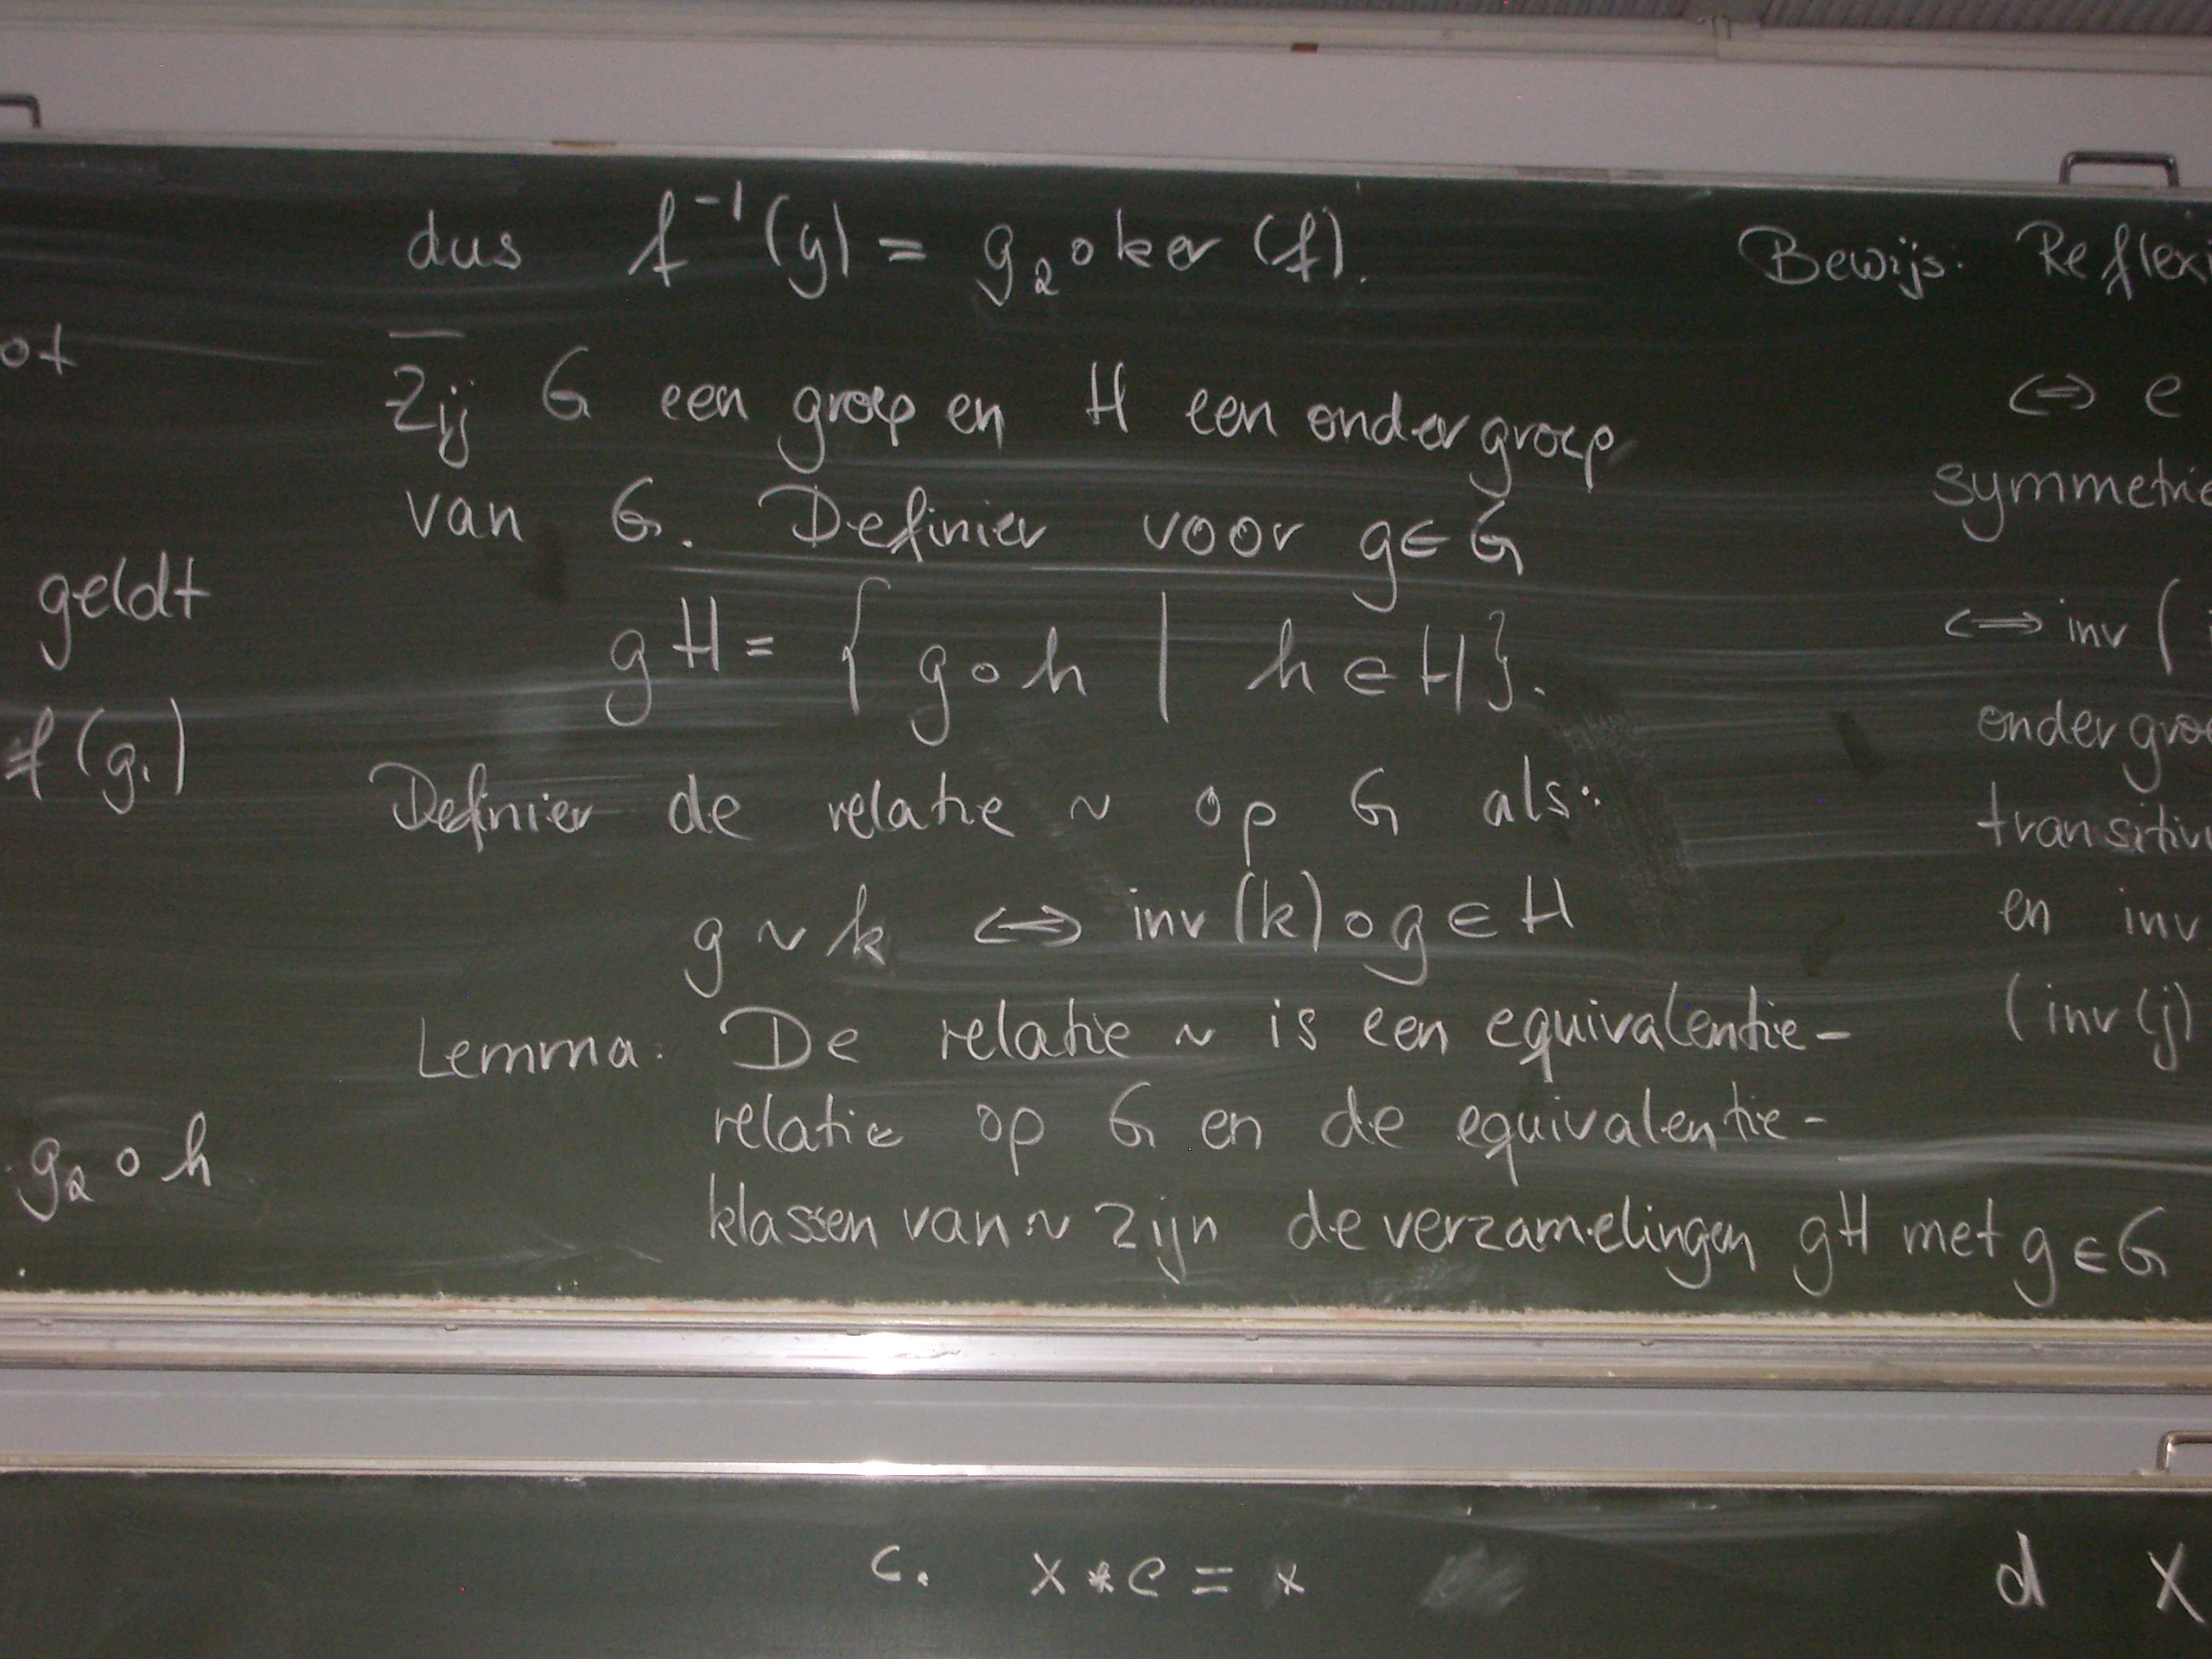 dus f⁻¹(g) = g₂ ∘ ker (f).
Zij G een groep en H een ondergroep
van G. Definier voor g ∈ G
gH = { g ∘ h | h ∈ H}.
Definier de relatie ~ op G als:
g ~ k ⇔ inv (k) ∘ g ∈ H
Lemma: De relatie ~ is een equivalentie-
relatie op G en de equivalentie-
klassen van ~ zijn de verzamelingen gH met g ∈ G
ot
geldt
f (g₁)
g₂ ∘ h
Bewijs: Reflexi
⇔ e
symmetrie
⇔ inv (
ondergroe
transitivi
en inv
(inv (j)
c. x * e = x
d x